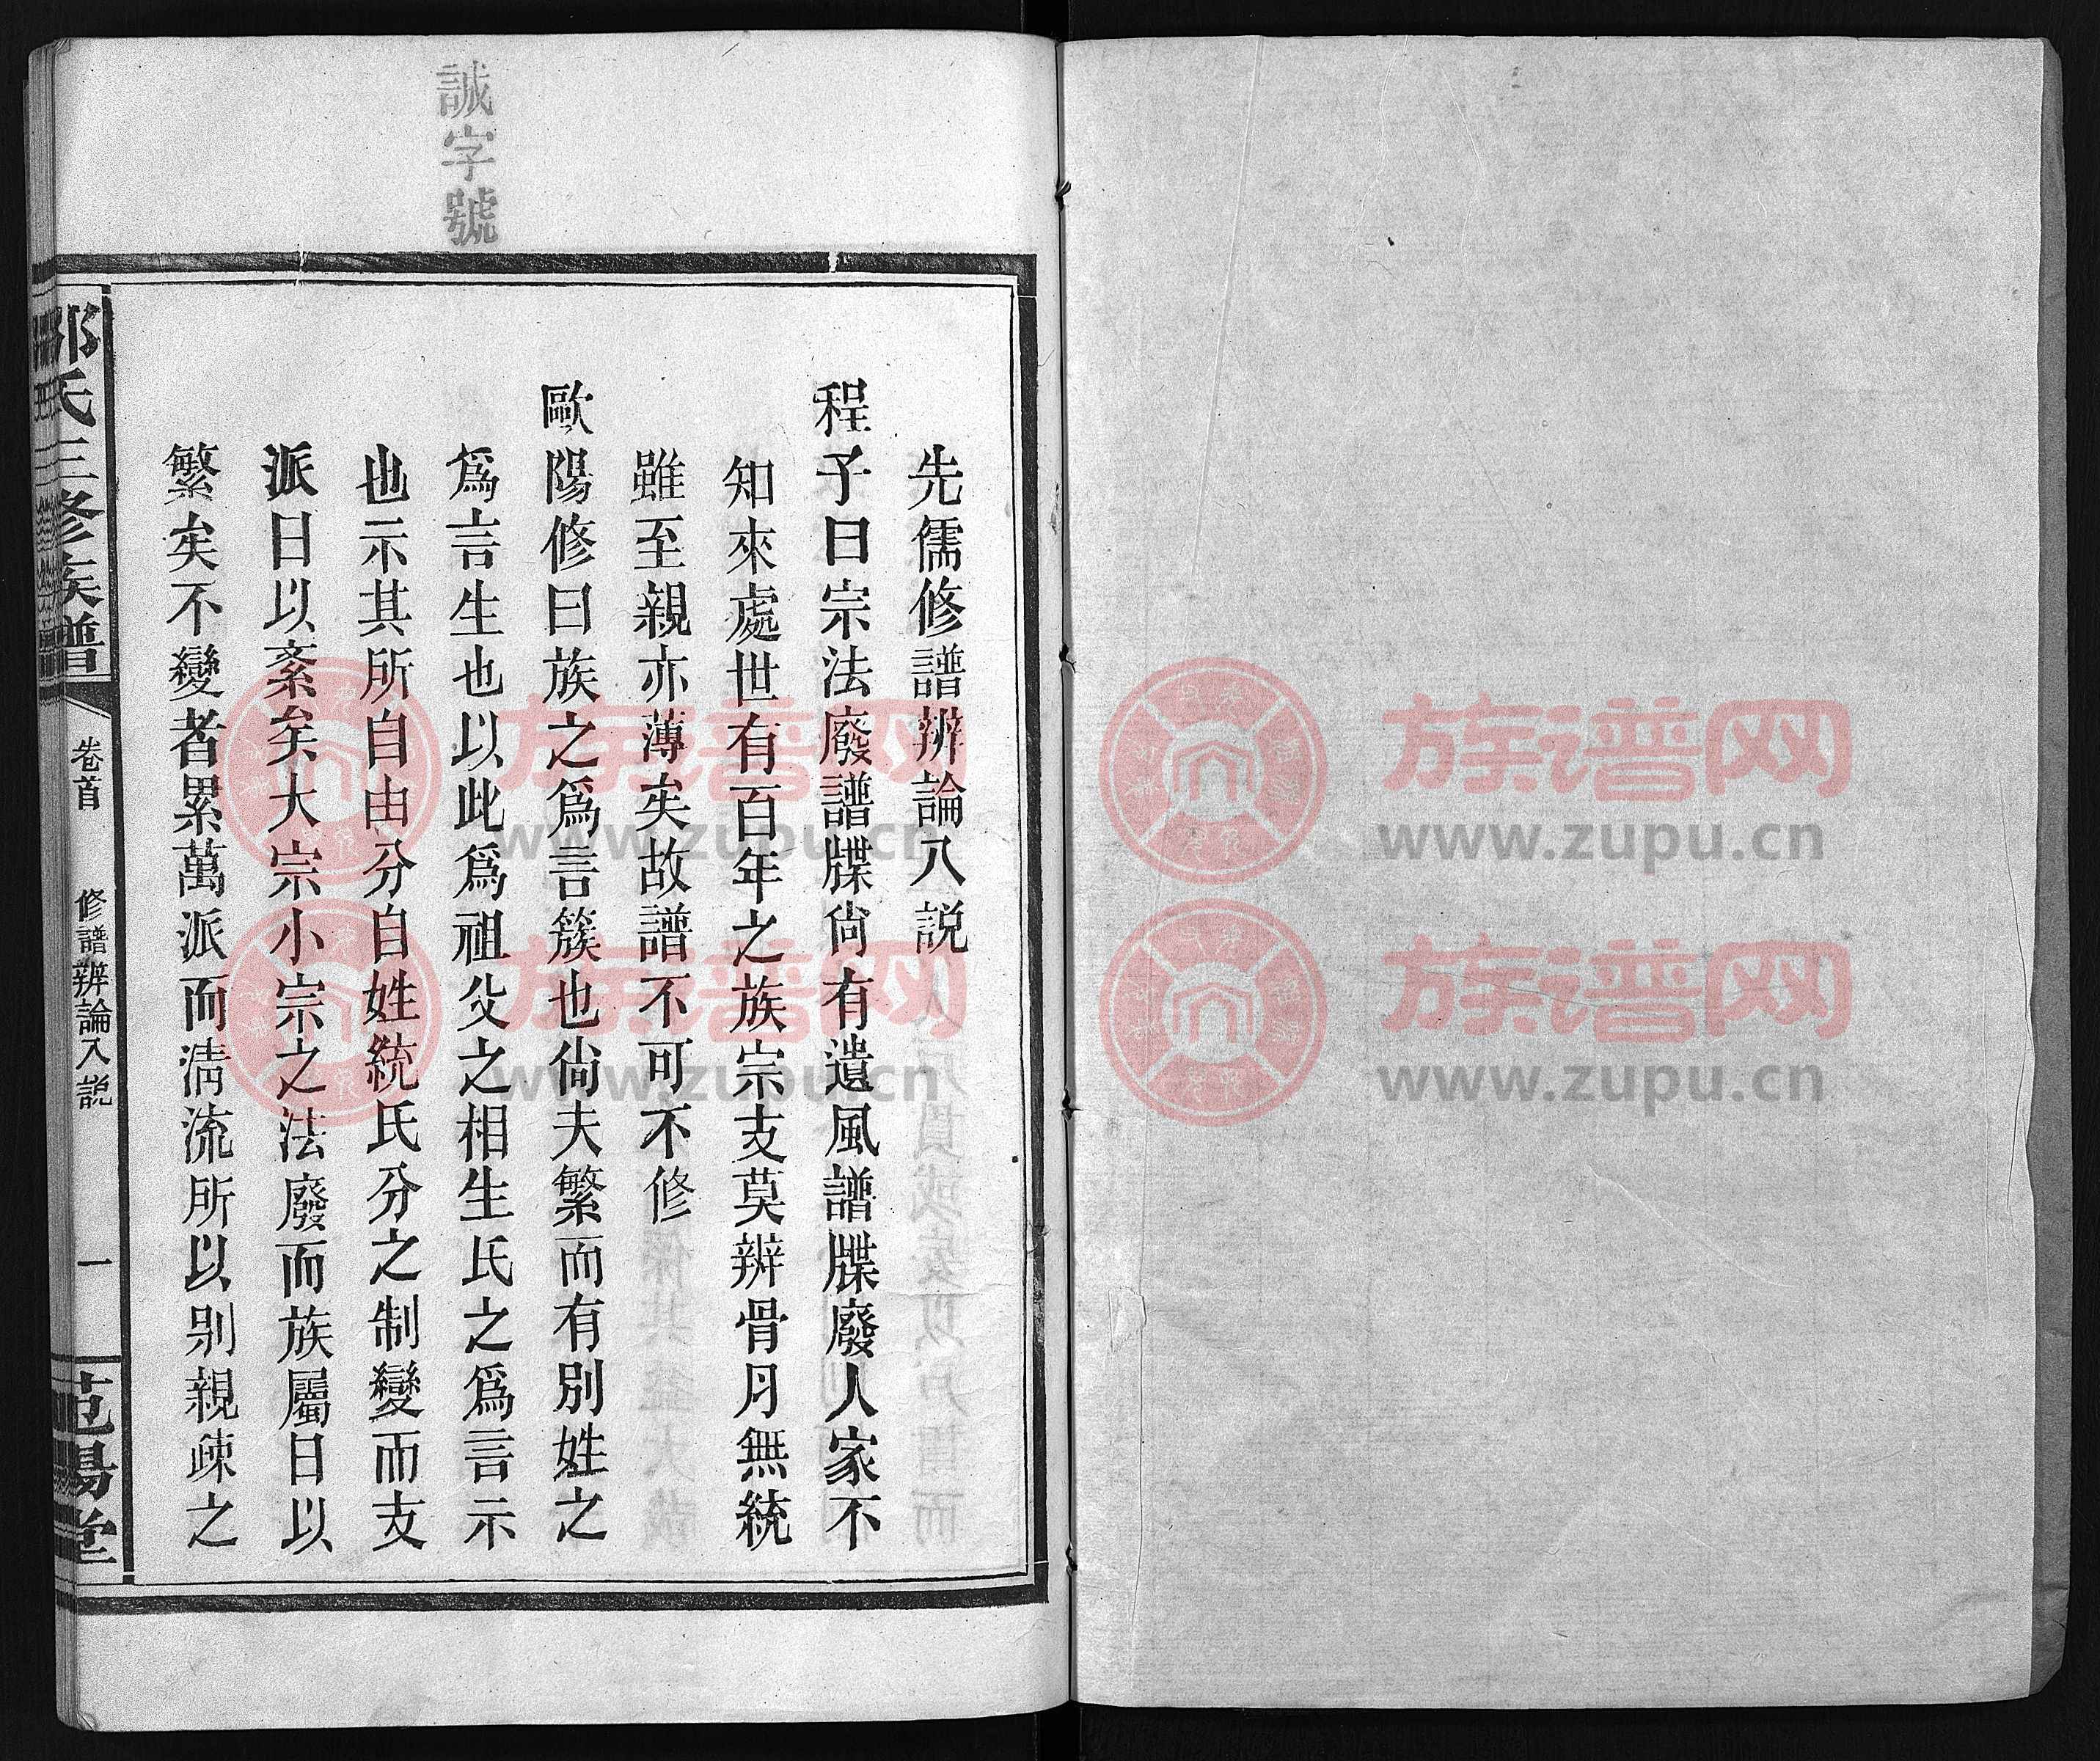 誠字號
先儒修譜辨論八説
程子曰宗法廢譜牒尙有遺風譜牒廢人家不
知來處世有百年之族宗支莫辨骨月無統
雖至親亦薄矣故譜不可不修
歐陽修曰族之爲言簇也尙夫繁而有別姓之
爲言生也以此爲祖父之相生氏之爲言示
也示其所自由分自姓統氏分之制變而支
派日以紊矣大宗小宗之法廢而族屬日以
繁矣不變者累萬派而淸流所以别親疎之
氏三修族譜
卷首
修譜辨論八説
一
范陽堂
族谱网
www.zupu.cn
族谱网
www.zupu.cn
族谱网
www.zupu.cn
族谱网
www.zupu.cn